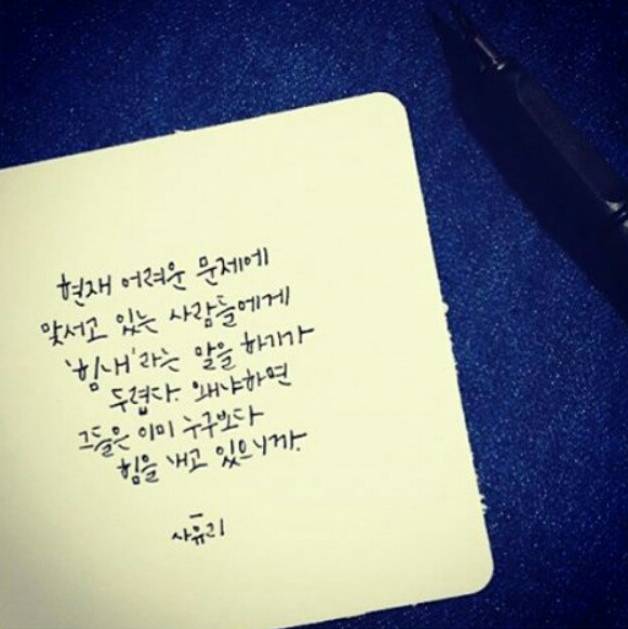 현재 어려운 문제에
맞서고 있는 사람들에게
'힘내'라는 말을 하기가
두렵다. 왜냐하면
그들은 이미 누구보다
힘을 내고 있으니까.
-
사유리